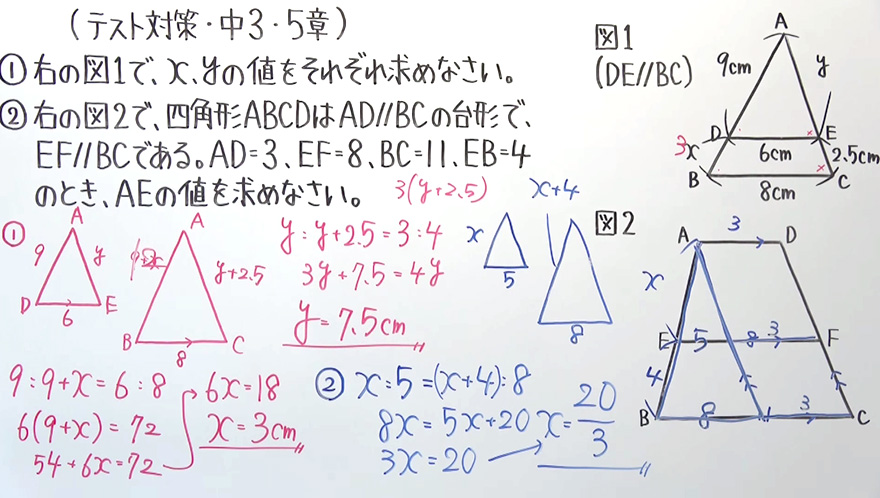 (テスト対策・中3・5章)
①右の図1で、x、yの値をそれぞれ求めなさい。
②右の図2で、四角形ABCDはAD//BCの台形で、
EF//BCである。AD=3、EF=8、BC=11、EB=4
のとき、AEの値を求めなさい。
3(y+2.5)
x+4
図1
(DE//BC)
A
9cm
y
D
E
3
x
6cm
2.5cm
B
8cm
C
①
A
9
y
D
6
E
A
y+2.5
B
8
C
y:y+2.5=3:4
3y+7.5=4y
y=7.5cm
9:9+x=6:8
6(9+x)=72
54+6x=72
6x=18
x=3cm
x
5
8
②x:5=(x+4):8
8x=5x+20
3x=20
x=20/3
図2
A
3
D
x
E
5
8
3
F
4
B
8
3
C